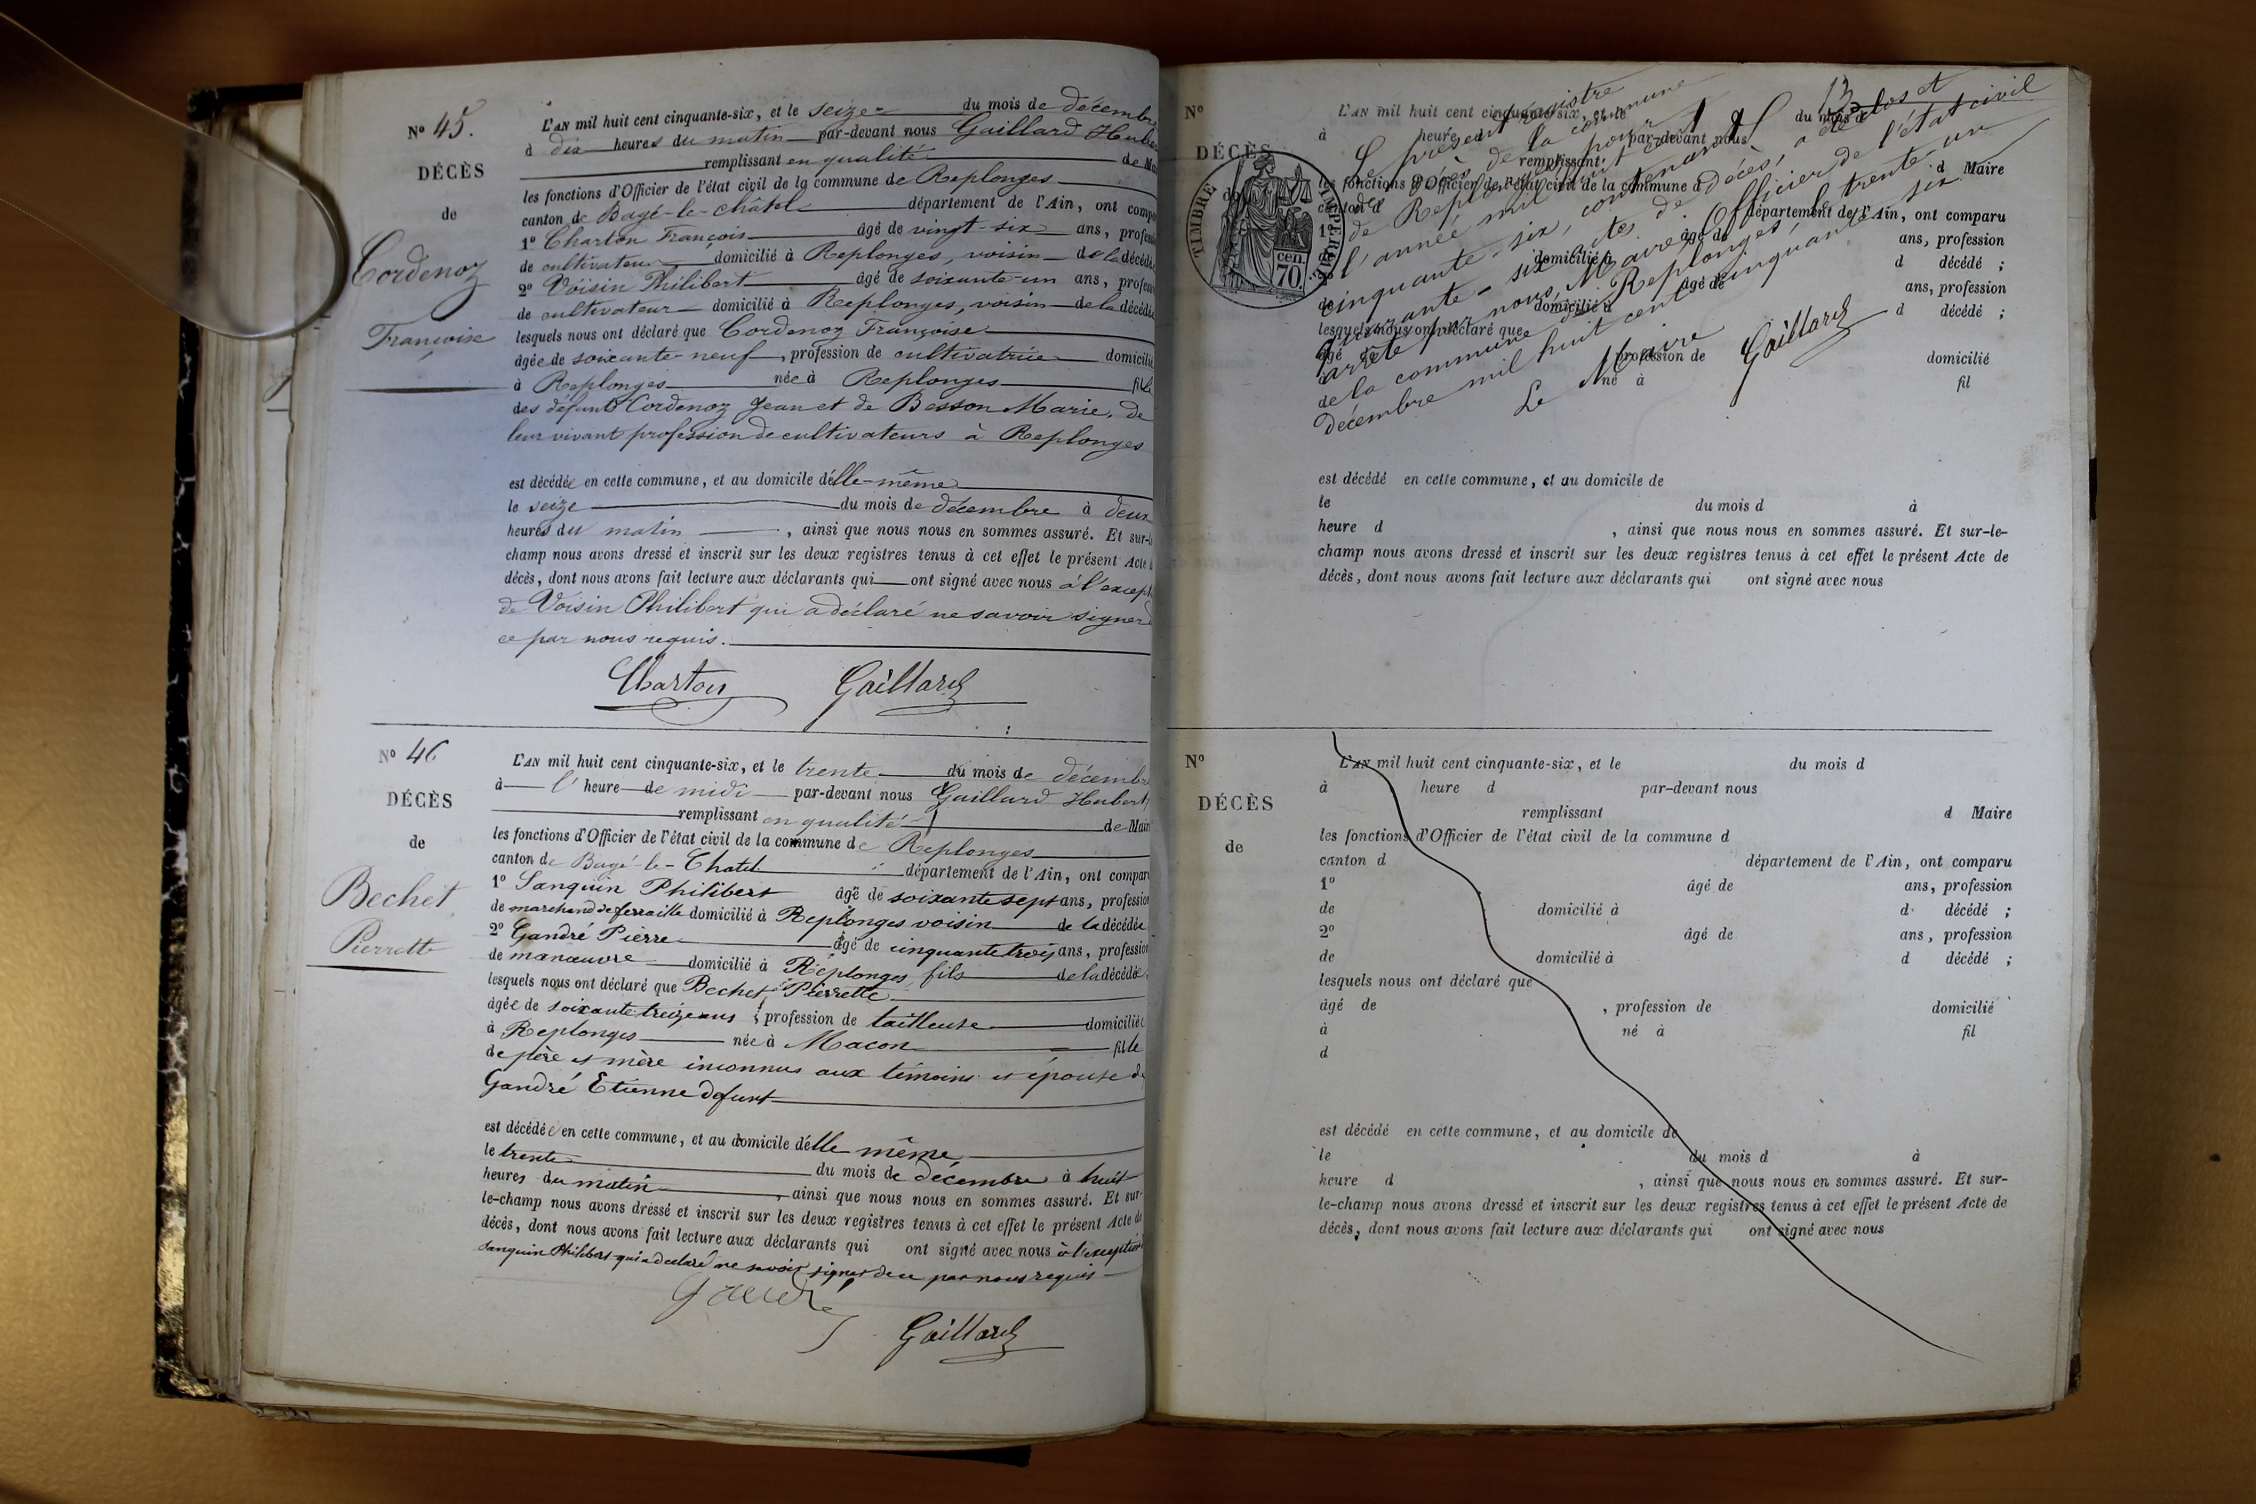 N° 45.
DÉCÈS
de
Cordenoz
Françoise
L'AN mil huit cent cinquante-six, et le seize du mois de décembre
à dix heures du matin par-devant nous Gaillard Hube
remplissant en qualité de Ma
les fonctions d'Officier de l'état civil de la commune de Replonges
canton de Bagé-le-châtel département de l'Ain, ont compa
1° Charton François âgé de vingt-six ans, profess
de cultivateur domicilié à Replonges, voisin de la décédée
2° Voisin Philibert âgé de soixante-un ans, profess
de cultivateur domicilié à Replonges, voisin de la décédée
lesquels nous ont déclaré que Cordenoz Françoise
âgée de soixante-neuf, profession de cultivatrice domicilié
à Replonges née à Replonges fille
des défunts Cordenoz Jean et de Besson Marie, de
leur vivant profession de cultivateurs à Replonges
est décédée en cette commune, et au domicile d'elle-même
le seize du mois de décembre à deux
heures du matin, ainsi que nous nous en sommes assuré. Et sur-le
champ nous avons dressé et inscrit sur les deux registres tenus à cet effet le présent Acte d
décès, dont nous avons fait lecture aux déclarants qui ont signé avec nous à l'except
de Voisin Philibert qui a déclaré ne savoir signer d
ce par nous requis.
Charton Gaillard
N° 46
DÉCÈS
de
Bechet
Pierrette
L'AN mil huit cent cinquante-six, et le trente du mois de décembre
à l' heure de midi par-devant nous Gaillard Hubert
remplissant en qualité de Mair
les fonctions d'Officier de l'état civil de la commune de Replonges
canton de Bagé-le-Chatel département de l'Ain, ont compar
1° Sanguin Philibert âgé de soixante sept ans, profession
de marchand de ferraille domicilié à Replonges voisin de la décédée
2° Gandré Pierre âgé de cinquante trois ans, profession
de manœuvre domicilié à Replonges, fils de la décédée,
lesquels nous ont déclaré que Bechet Pierrette
âgée de soixante treize ans, profession de tailleuse domiciliée
à Replonges née à Macon fille
de père et mère inconnus aux témoins et épouse de
Gandré Etienne defunt
est décédée en cette commune, et au domicile d'elle même
le trente du mois de décembre à huit
heures du matin, ainsi que nous nous en sommes assuré. Et sur-
le-champ nous avons dressé et inscrit sur les deux registres tenus à cet effet le présent Acte de
décès, dont nous avons fait lecture aux déclarants qui ont signé avec nous à l'exception
Sanguin Philibert qui a declaré ne savoir signer de ce par nous requis
Gandré
Gaillard
N°
DÉCÈS
de
TIMBRE IMPÉRIAL
70 cen.
13
L'AN mil huit cent cinquante-six, et le du mois d
à heure d par-devant nous
remplissant d Maire
les fonctions d'Officier de l'état civil de la commune d
canton d département de l'Ain, ont comparu
1° âgé de ans, profession
de domicilié à d décédé ;
2° âgé de ans, profession
de domicilié à d décédé ;
lesquels nous ont déclaré que
âgé de profession de domicilié
à né à fil
Le présent registre
des décès de la commune
de Replonges pour
l'année mil huit cent
cinquante-six, contenant
quarante-six actes de décès, a été clos et
arrêté par nous, Maire, Officier de l'état civil
de la commune de Replonges, le trente-un
décembre mil huit cent cinquante-six
Le Maire
Gaillard
est décédé en cette commune, et au domicile de
le du mois d à
heure d , ainsi que nous nous en sommes assuré. Et sur-le-
champ nous avons dressé et inscrit sur les deux registres tenus à cet effet le présent Acte de
décès, dont nous avons fait lecture aux déclarants qui ont signé avec nous
N°
DÉCÈS
de
L'AN mil huit cent cinquante-six, et le du mois d
à heure d par-devant nous
remplissant d Maire
les fonctions d'Officier de l'état civil de la commune d
canton d département de l'Ain, ont comparu
1° âgé de ans, profession
de domicilié à d décédé ;
2° âgé de ans, profession
de domicilié à d décédé ;
lesquels nous ont déclaré que
âgé de , profession de domicilié
à né à fil
d
est décédé en cette commune, et au domicile de
le du mois d à
heure d , ainsi que nous nous en sommes assuré. Et sur-
le-champ nous avons dressé et inscrit sur les deux registres tenus à cet effet le présent Acte de
décès, dont nous avons fait lecture aux déclarants qui ont signé avec nous